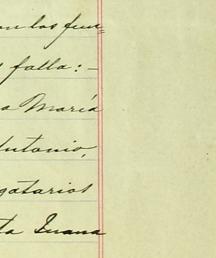 on los fun=
s falla:-
a María
Antonio,
gatarios
ta Juana